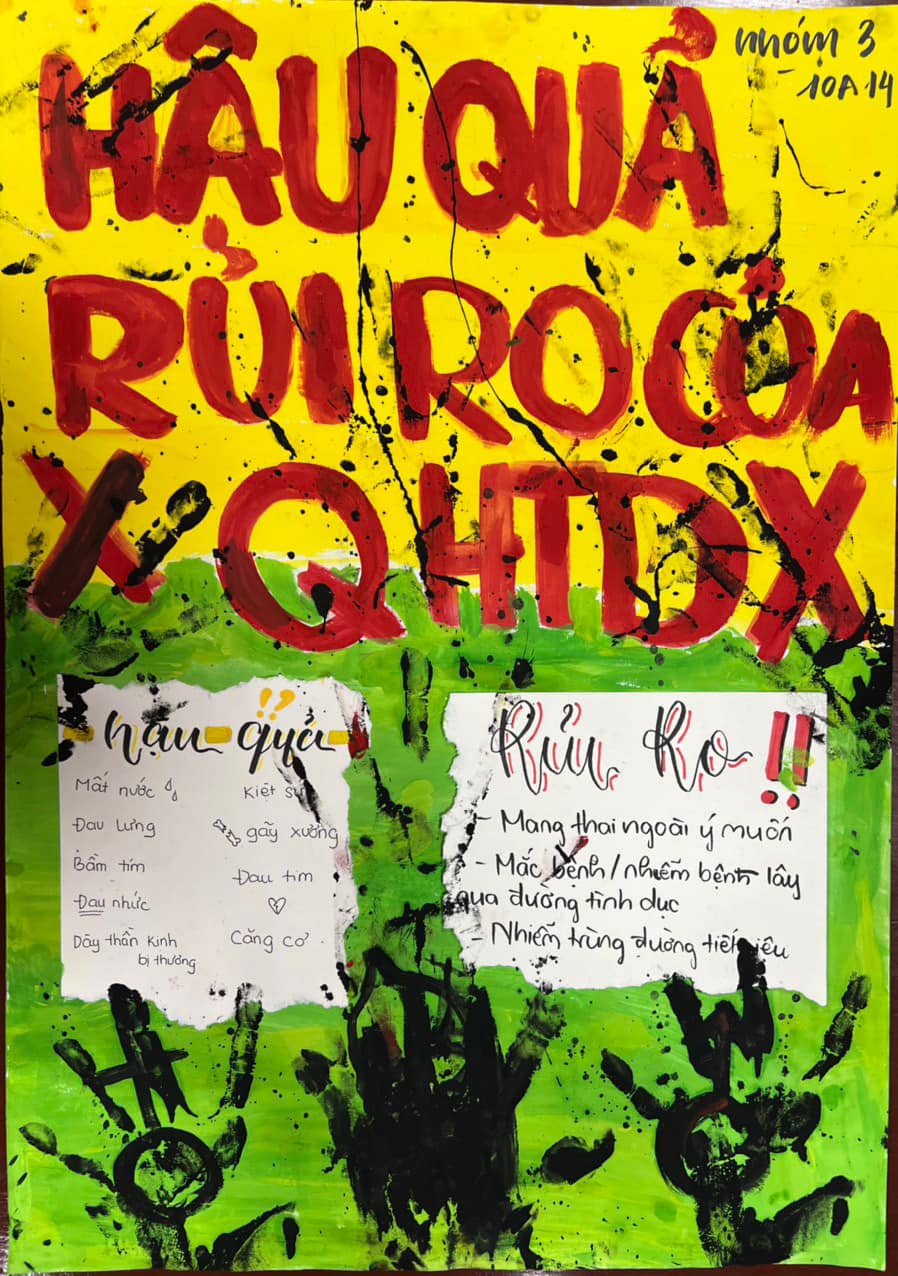 nhóm 3
10A14
HẬU QUẢ
RỦI RO CỦA
XQHTDX
hậu quả !?
Mất nước
Đau lưng
Bầm tím
Đau nhức
Dây thần kinh
bị thương
Kiệt sức
gãy xương
Đau tim
Căng cơ
Rủi Ro !!
- Mang thai ngoài ý muốn
- Mắc bệnh / nhiễm bệnh lây
qua đường tình dục
- Nhiễm trùng đường tiết niệu